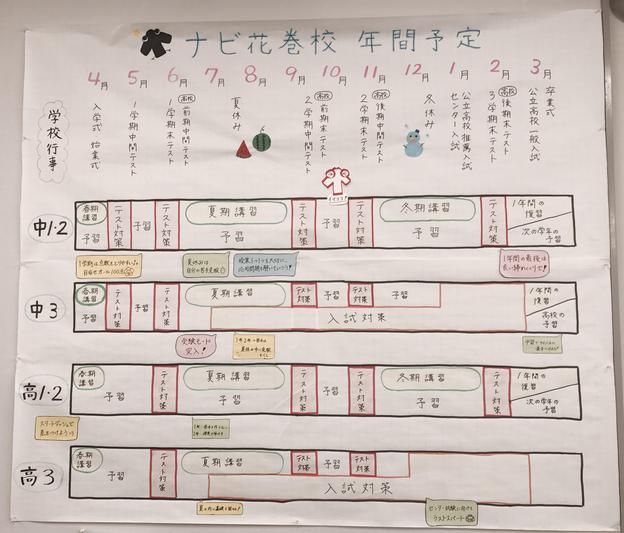 ナビ花巻校 年間予定
4月 5月 6月 7月 8月 9月 10月 11月 12月 1月 2月 3月
学校行事
入学式 始業式
1学期中間テスト
高校 前期中間テスト
1学期末テスト
夏休み
2学期中間テスト
高校 前期末テスト
高校 後期中間テスト
2学期末テスト
冬休み
公立高校推薦入試
センター入試
高校 後期末テスト
3学期末テスト
卒業式
公立高校一般入試
中1·2
春期講習
予習
テスト対策
予習
テスト対策
夏期講習
予習
テスト対策
予習
テスト対策
冬期講習
予習
テスト対策
1年間の復習
次の学年の予習
夏休みは
1年間の最後は
中3
春期講習
予習
テスト対策
予習
テスト対策
夏期講習
テスト対策
予習
テスト対策
予習
入試対策
1年間の復習
高校の予習
受験モード
突入!
高1·2
春期講習
予習
テスト対策
夏期講習
予習
テスト対策
予習
テスト対策
冬期講習
予習
テスト対策
1年間の復習
次の学年の予習
スタートダッシュで
高3
春期講習
予習
テスト対策
夏期講習
テスト対策
予習
テスト対策
入試対策
センター試験に向けて
ラストスパート